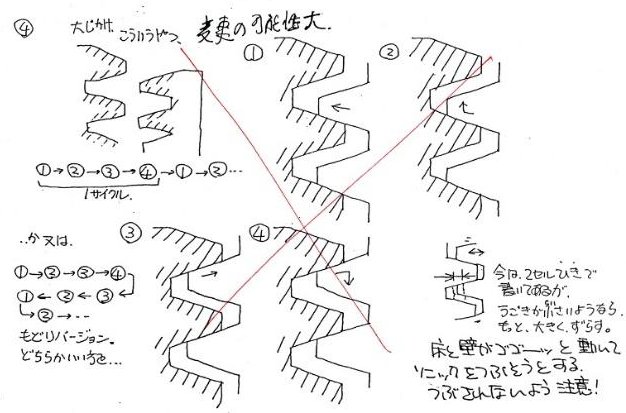 ④ 大じかけ。 こういうやつ、 変更の可能性大.
① ②
①→②→③→④→①→②…
1サイクル.
..か又は.
③ ④
①→②→③→④
①←②←③
→②→…
もどりバージョン。
どちらかいい方を…
今は、2セルひきで
書いてあるが、
うごきがわるいようなら、
もっと、大きく、ずらす。
床と壁がゴゴゴーッと動いて
ソニックをつぶそうとする.
つぶされないよう注意!